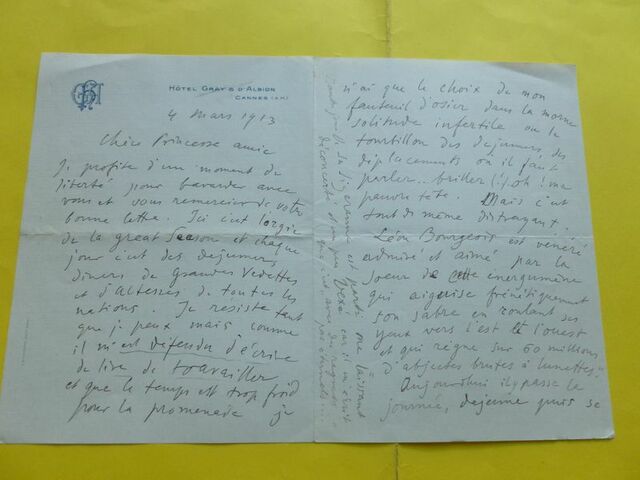 HÔTEL GRAY & D'ALBION
CANNES (A.M.)
4 Mars 1913
Chère Princesse amie
Je profite d'un moment de
liberté pour bavarder avec
vous et vous remercier de votre
bonne lettre. Ici c'est l'orgie
de la great Season et chaque
jour c'est des dejeuners,
diners de Grandes Vedettes
et d'altesses de toutes les
nations. Je resiste tant
que je peux mais comme
il m'est défendu d'écrire
de lire de travailler
et que le temps est trop froid
pour la promenade je
n'ai que le choix de mon
fauteuil d'osier dans la morne
solitude infertile ou le
tourbillon des dejeuners, des
déplacements où il faut
parler.. briller (!) oh! ma
pauvre tête. Mais c'est
tout de même distrayant.
Léon Bourgeois est vénéré
admiré et aimé par la
soeur de cette énergumène
qui aiguise frénétiquement
son sabre en roulant des
yeux vers l'est et l'ouest
et qui règne sur 60 millions
d'abjectes brutes à lunettes"
Aujourd'hui il y passe la
journée, dejeune puis se
est parti me laissant
déconcerté et un peu vexé car il m'écrit